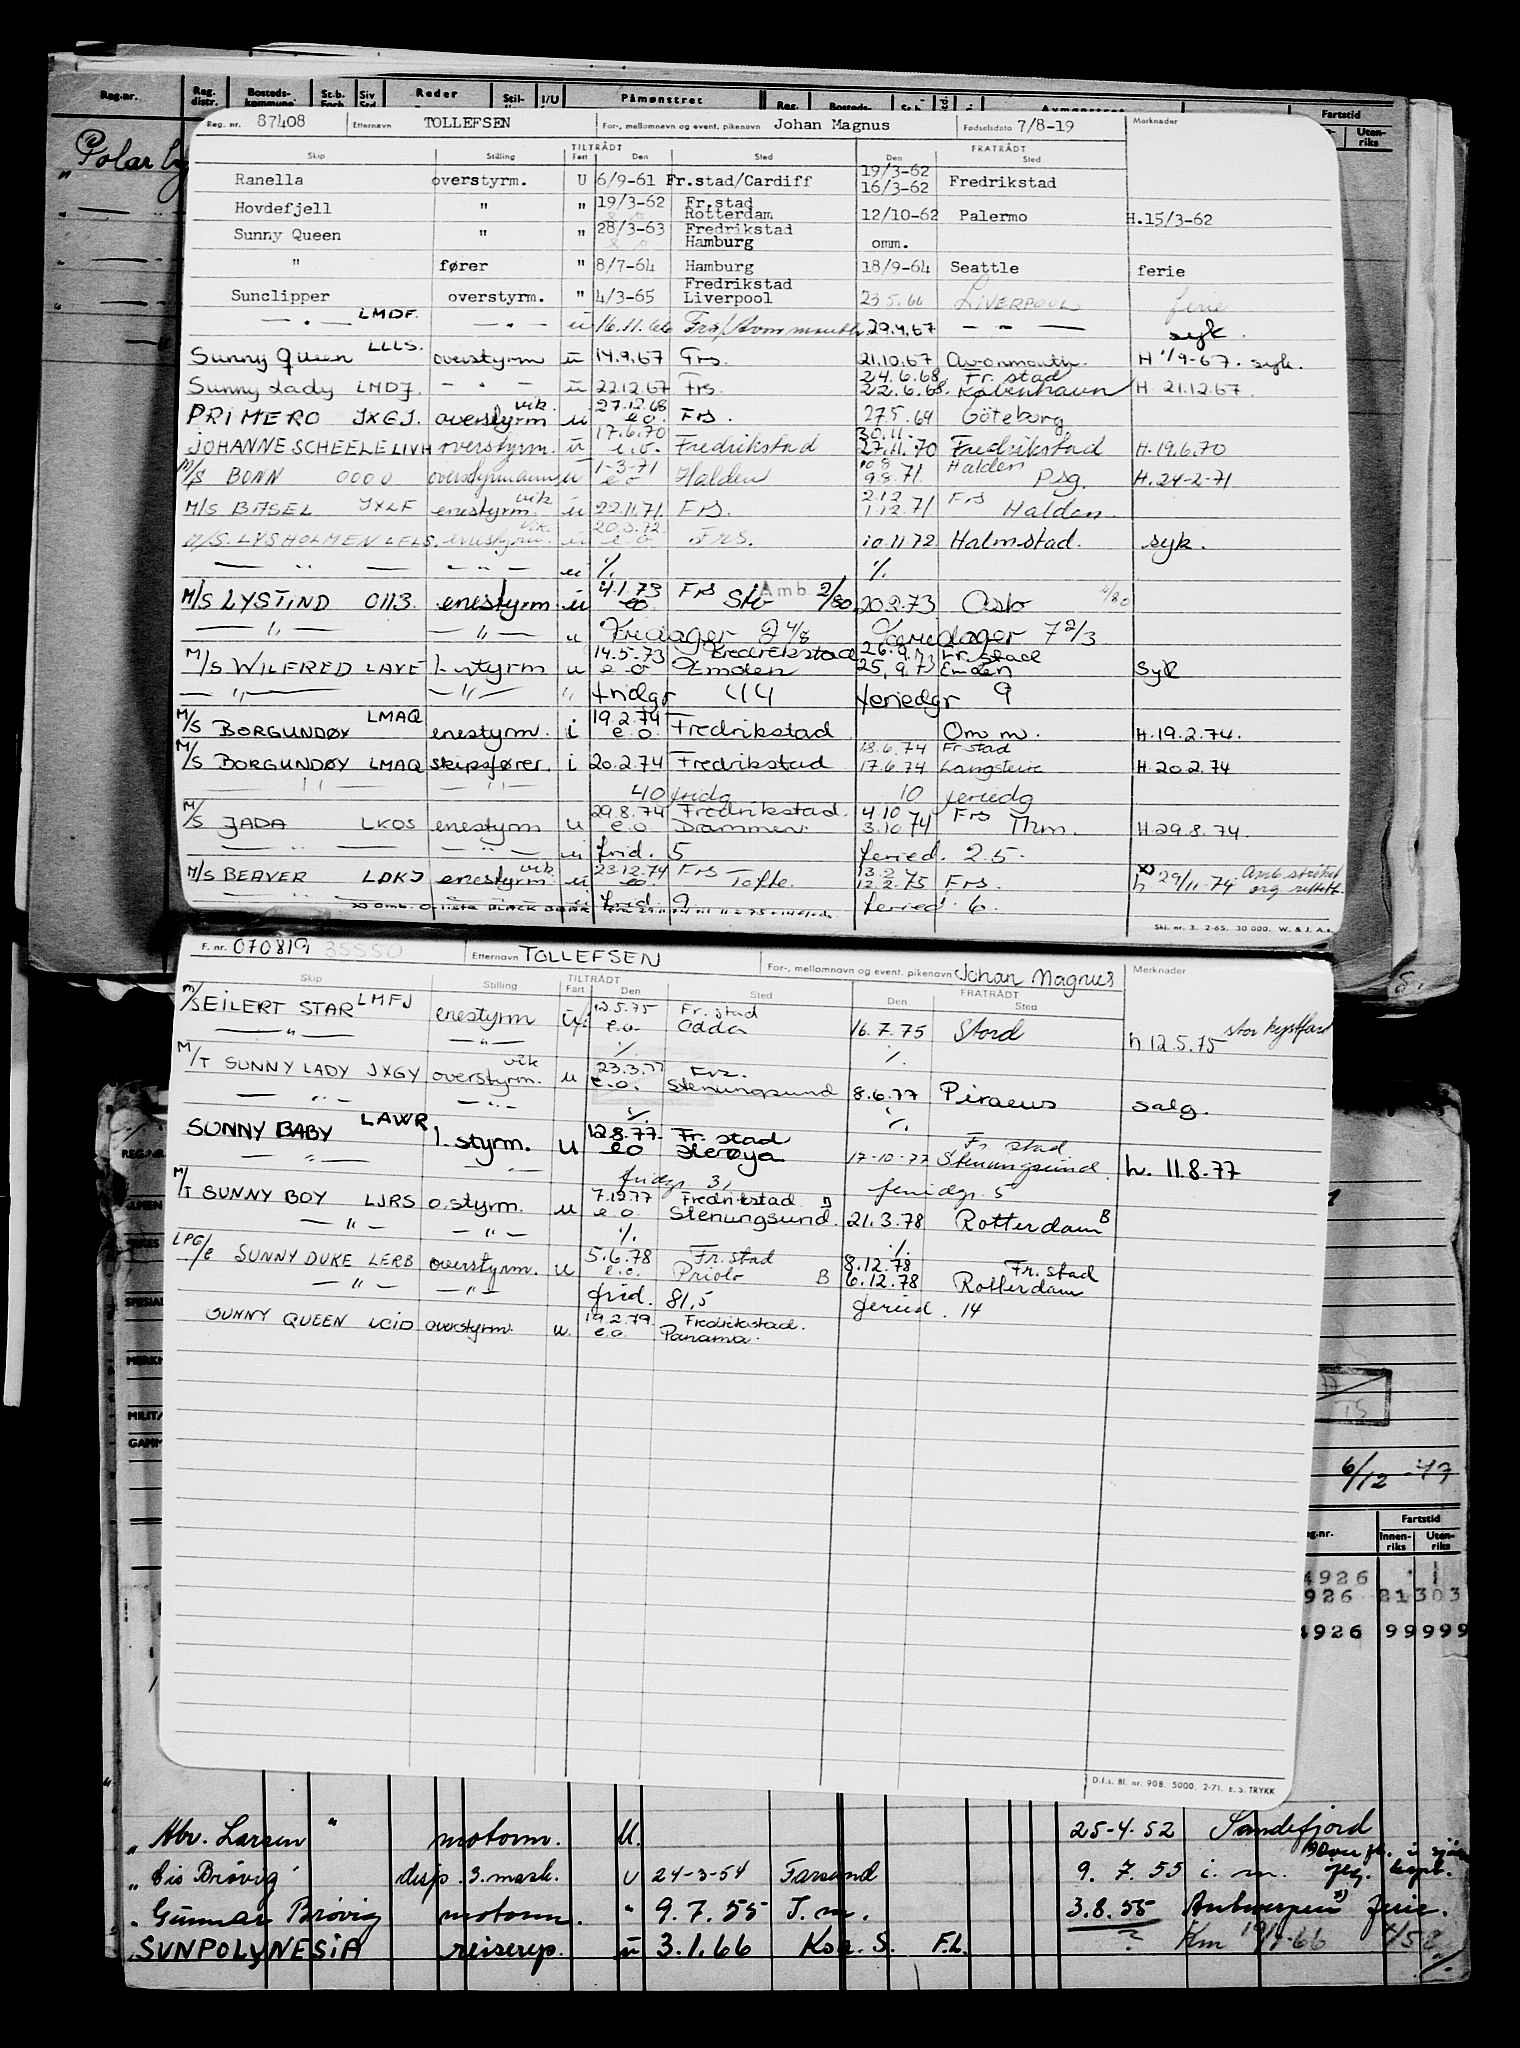 Reg.nr. Reg. distr. Bosteds- kommune St.b. Forb. Siv Std. Reder Stil- I/U Påmønstret Reg. Bosteds- St.b. Avmønstret Fartstid
Uten- riks
Polar
Reg. nr. 87408 Etternavn TOLLEFSEN For-, mellomnavn og event. pikenavn Johan Magnus Fødselsdato 7/8-19 Merknader
TILTRÅDT FRATRÅDT
Skip Stilling Fart Den Sted Den Sted
Ranella overstyrm. U 6/9-61 Fr.stad/Cardiff 19/3-62 16/3-62 Fredrikstad
Hovdefjell " " 19/3-62 Fr.stad Rotterdam 12/10-62 Palermo H.15/3-62
Sunny Queen " " 28/3-63 Fredrikstad Hamburg omm.
" fører " 8/7-64 Hamburg 18/9-64 Seattle ferie
Sunclipper overstyrm. " 4/3-65 Fredrikstad Liverpool 23.5.66 LIVERPOOL ferie
— " — LMDF. — " — u 16.11.66 Frs/Avonmouth 29.4.67 — " — syk.
Sunny Queen LLLS. overstyrm u 14.9.67 Frs. 21.10.67 Avonmouth. H 1/9-67. syk.
Sunny Lady LMDJ. — " — u 22.12.67 Frs. 24.6.68 Fr.stad 22.6.68. København H 21.12.67
PRIMERO JXGJ. vik. overstyrm u 27.12.68 e.o. Frs. 27.5.69 Göteborg
JOHANNE SCHEELE LIVH overstyrm. u 17.6.70 e.o. Fredrikstad 30.11- 27.11.70 Fredrikstad H.19.6.70
M/S BONN 0000 overstyrmann u 1-3-71 e o Halden 10.8 9.8.71. Halden Psg. H.24-2-71
M/S BASEL JXLF vik enestyrm. u 22.11.71. Frs. 2.12 1.12.71 Frs Halden
M/S. LYSHOLMEN LELS. vik. enestyrm. u 20.3.72 e o Frs. 10.11.72 Halmstad. syk.
— " — — " — u %. %.
M/S LYSTIND 0113. enestyrm u 4.1.73 eo Frs Amb 2/80 20.2.73 Oslo 4/80
— " — — " — u Fridager 2 4/8 Feriedager 7 2/3
M/S WILFRED LAVE 1. styrm u 14.5-73 e o Fredrikstad Emden 26.9.73 25.9.73 Fr.stad Emden syk
— " — — " — " fridgr 44 feriedgr 9
M/S BORGUNDØY LMAQ enestyrm. i 19.2.74 e.o. Fredrikstad Omm. H.19.2.74.
M/S BORGUNDØY LMAQ skipsfører. i 20.2.74 Fredrikstad 18.6.74 Fr.stad 17.6.74 H.20.2.74
— " — — " — 40 fridg 10 feriedg
M/S JADA LKOS enestyrm u 29.8.74 e.o Fredrikstad. Drammen. 4.10 3.10.74 Frs Thm. H.29.8.74.
— " — — " — u frid. 5 feried. 2.5.
M/S BEAVER LDKJ vik enestyrm. u 23.12.74 eo. Frs Tofte. 13.2 12.2.75 Frs. h 29/11-74
— " — — " — u frid. 9 feried. 6.
Skj. nr. 3. 2-65. 30 000. W. & J. A.s.
F. nr. 070819 35550 Etternavn TOLLEFSEN For-, mellomnavn og event. pikenavn Johan Magnus Merknader
TILTRÅDT FRATRÅDT
Skip Stilling Fart Den Sted Den Sted
M/S EILERT STAR LMFJ enestyrm u. 12.5.75 e.o. Fr.stad Odda 16.7.75 Stord h 12.5.75 stor kystfart
— " — — " — %. %.
M/T SUNNY LADY JXGY vik overstyrm. u 23.3.77 e.o. Frs. Stenungsund 8.6.77 Piraeus salg.
— " — — " — %. %.
SUNNY BABY LAWR 1. styrm. u 12.8.77. eo Fr.stad Herøya 17-10-77 Fr stad Stenungsund. h. 11.8.77
— " — — " — fridgr. 3, feriedgr. 5
M/T SUNNY BOY LJRS o.styrm. u 7.12.77 e.o. Fredrikstad Stenungsund. 21.3.78 Rotterdam B
— " — — " — %. %.
LPG/C SUNNY DUKE LERB overstyrm. u 5.6.78 e.o. Fr.stad Priolo B 8.12.78 6.12.78 Fr.stad Rotterdam
— " — — " — frid. 81,5 feried. 14
SUNNY QUEEN LCIO overstyrm. u. 19.2.79. e.o. Fredrikstad. Panama.
REG.NR.
SPESIAL
MERKN
MILITÆ
GAMM
15
6/12 -47
Fartstid
g.nr. Innen- riks Uten- riks
4926 1
926 21303
4926 99999
D.f.s. Bl. nr. 908. 5000. 2-71. E. S. TRYKK
" Abr. Larsen " motorm. U. 25-4.52 Sandefjord
" Cis Brøvig disp. 3. mask. u 24-3-54 Farsund 9. 7. 55 i. m.
" Gunnar Brøvig motorm. " 9.7.55 I.m. 3.8.55 Antwerpen x) ferie.
SUNPOLYNESIA reiserep. u 3.1.66 Kbr. S. F.L. ? Km 19/1-66